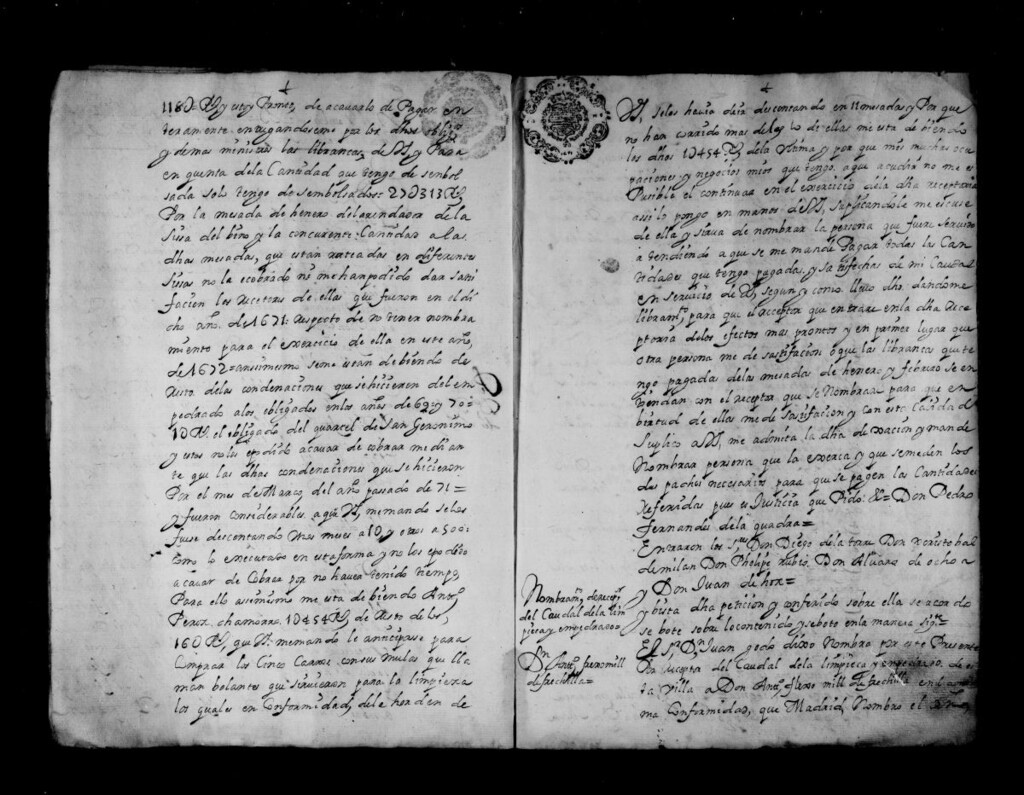 y estoy prompto de acavarlo de Pagar en
teramente entregandoseme por los dhos oblig.os
y demas ministros las libranças de VS, y Para
en quenta dela Cantidad que tengo de sembol
sada solo tengo de sembolsados: 27U313 Rs
Por la mesada de henero delarrendador de la
sissa del bino y la concurente Cantidad a las
dhas mesadas, que estan rateadas en diferentes
sissas no la ecobrado ni me hanpodido dar satis
facion los Receptores de ellas que fueron en el di
cho año de 1671: respecto de no tener nombra
miento para el exercicio de ella en este año,
de 1672= ansimismo seme estan debiendo de
resto delas condenaciones que se hicieron del en
pedrado alos obligados enlos años de 69 y 70=
1U Rs. el obligado del quarcel de San Geronimo
y estos nolos epodido acavar de cobrar medi an
te que las dhas condenaciones que se hicieron
Por el mes de Março del año passado de 71=
y fueron considerables. a que VS, memando selos
fuese descontando
Como lo e executado en esta forma y no los epodido
acavar de Cobrar por no haver tenido tiempo
Para ello assimismo me esta debiendo Ant.o
Perez chamorro 10454 Rs, de resto delos,
16U Rs, que VS. memando le anticipase para
comprar los Cinco Carros consus mulas que lla
man bolantes que sirvieran para la limpieza
los quales en Conformidad dela horden de
VS, selos havia deir descontando en 11 mesadas y Por que
no han corrido mas delas 10 de ellas me esta debiendo
los dhos 10454 Rs dela Ultima y por que mis muchas ocu
paciones y negocios mios que tengo, aque acudir no me es
Posible el continuar en el exercicio dela dha receptoria
assi lo pongo en manos de VS, suplicandole me escuse
de ella y sirva de nombrar la persona que fuere servido
atendiendo a que se me mande Pagar todas las Can
tidades que tengo pagadas, y satisfechas de mi Caudal
en servicio de VS, segun y como llevo dho, dandome
libran.s para que el receptor que entrare enla dha rece
ptoria delos efectos mas promptos y en primer lugar que
otra persona me de satisfacion o que las libranças que te
ngo pagadas delas mesadas de henero y febrero se en
tiendan con el receptor que se Nombrare para que en
birtud de ellas me de Satisfacion y con esta Calidad
Suplico a VS, me admita la dha dexacion y mande
Nombrar persona que la exerca y que semeden los
des pachos necesarios para que se pagen las Cantidades
Referidas pues es Justicia que Pido: &= Don Pedro
Fernandes dela quadra=
Entraron los S.res Don Diego dela torre Don Xpcristobal
de milan Don Phelipe Rubio. Don Alvaro de ochoa
y Don Juan de hor=
y bista dha peticion y conferido sobre ella se acordo
se bote sobre locontenido y seboto enla manera sig.te
El S.r D.n Juan godo dixo Nombra por este Presente
Por receptor del Caudal dela limpieça y empedrado, de es
ta Villa a Don Ant.o de frechilla
ma Conformidad, que Madrid, Nombro el
Nombram.to derecep.r
del Caudal dela lim
pieza y empedrados
En
D.n Ant.o
defrechilla=